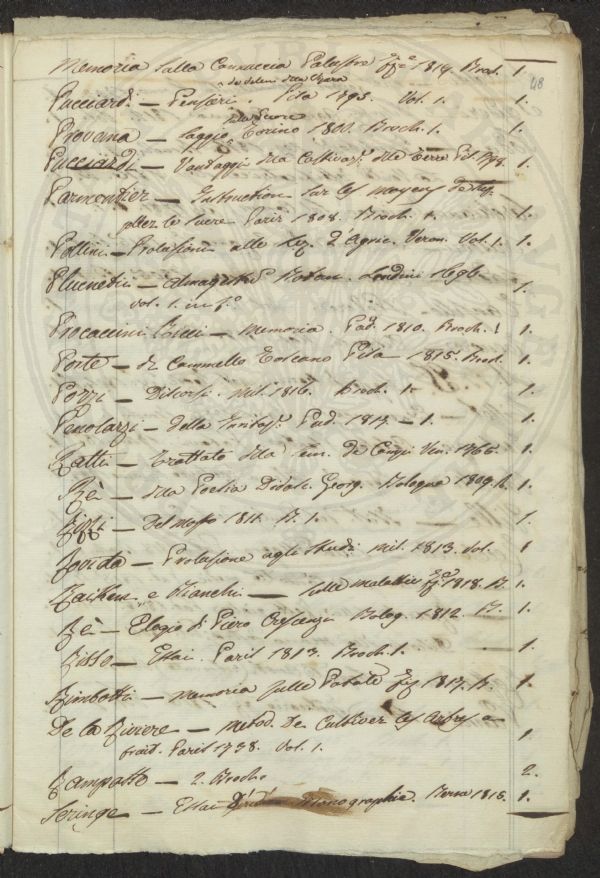 48
Memoria sulla Cannuccia Palustre 1814. Broch. 1.
Pucciardi — Pensieri. Pisa 1793. Vol. 1. 1.
Provana — Saggio Torino 1800. Broch. 1. 1.
Pucciardi — Vantaggi della Coltivaz. delle Terre Pis. 1.
Parmentier — Instruction sur les moyens de sup-
pléer le sucre Paris 1808. Broch. 1. 1.
Pollini — Prolusioni alle Lez. d'Agric. Veron. Vol. 1. 1.
Plucnetii — Botan. Londini 1696.
vol. 1. in f.o 1.
Procaccini Ricci — Memoria. Pad. 1810. Broch. 1 1.
Porte — di Cammello Toscano Pisa 1815. Broch. 1.
Pozzi — Discorsi. Mil. 1816. Broch. 1. 1.
Penolazzi — della Pad. 1817. — 1. 1.
Ratti — Trattato della sem. de Campi Ven. 1765. 1.
Rè — della Poesia Didasc. Georg. Bologna 1809. B. 1.
Rizzi — Del mosto 1811. B. 1. 1.
Rovida — Prolusione agli Studi Mil. 1813. Vol. 1
e Bianchi — Sulle malattie 1818. B. 1.
Rè — Elogio di Piero Crescenzi Bolog. 1812. B. 1.
Risso — Essai. Paris 1813. Broch. 1. 1.
Rimbotti — Memoria sulle Patate 1817. B. 1.
De la Riviere — Metod. de Cultiver les Arbres a
fruit. Paris 1738. Vol. 1. 1.
Rampasto — 2. Broch. 2.
Seringe — Essai Monographie. Berna 1815. 1.